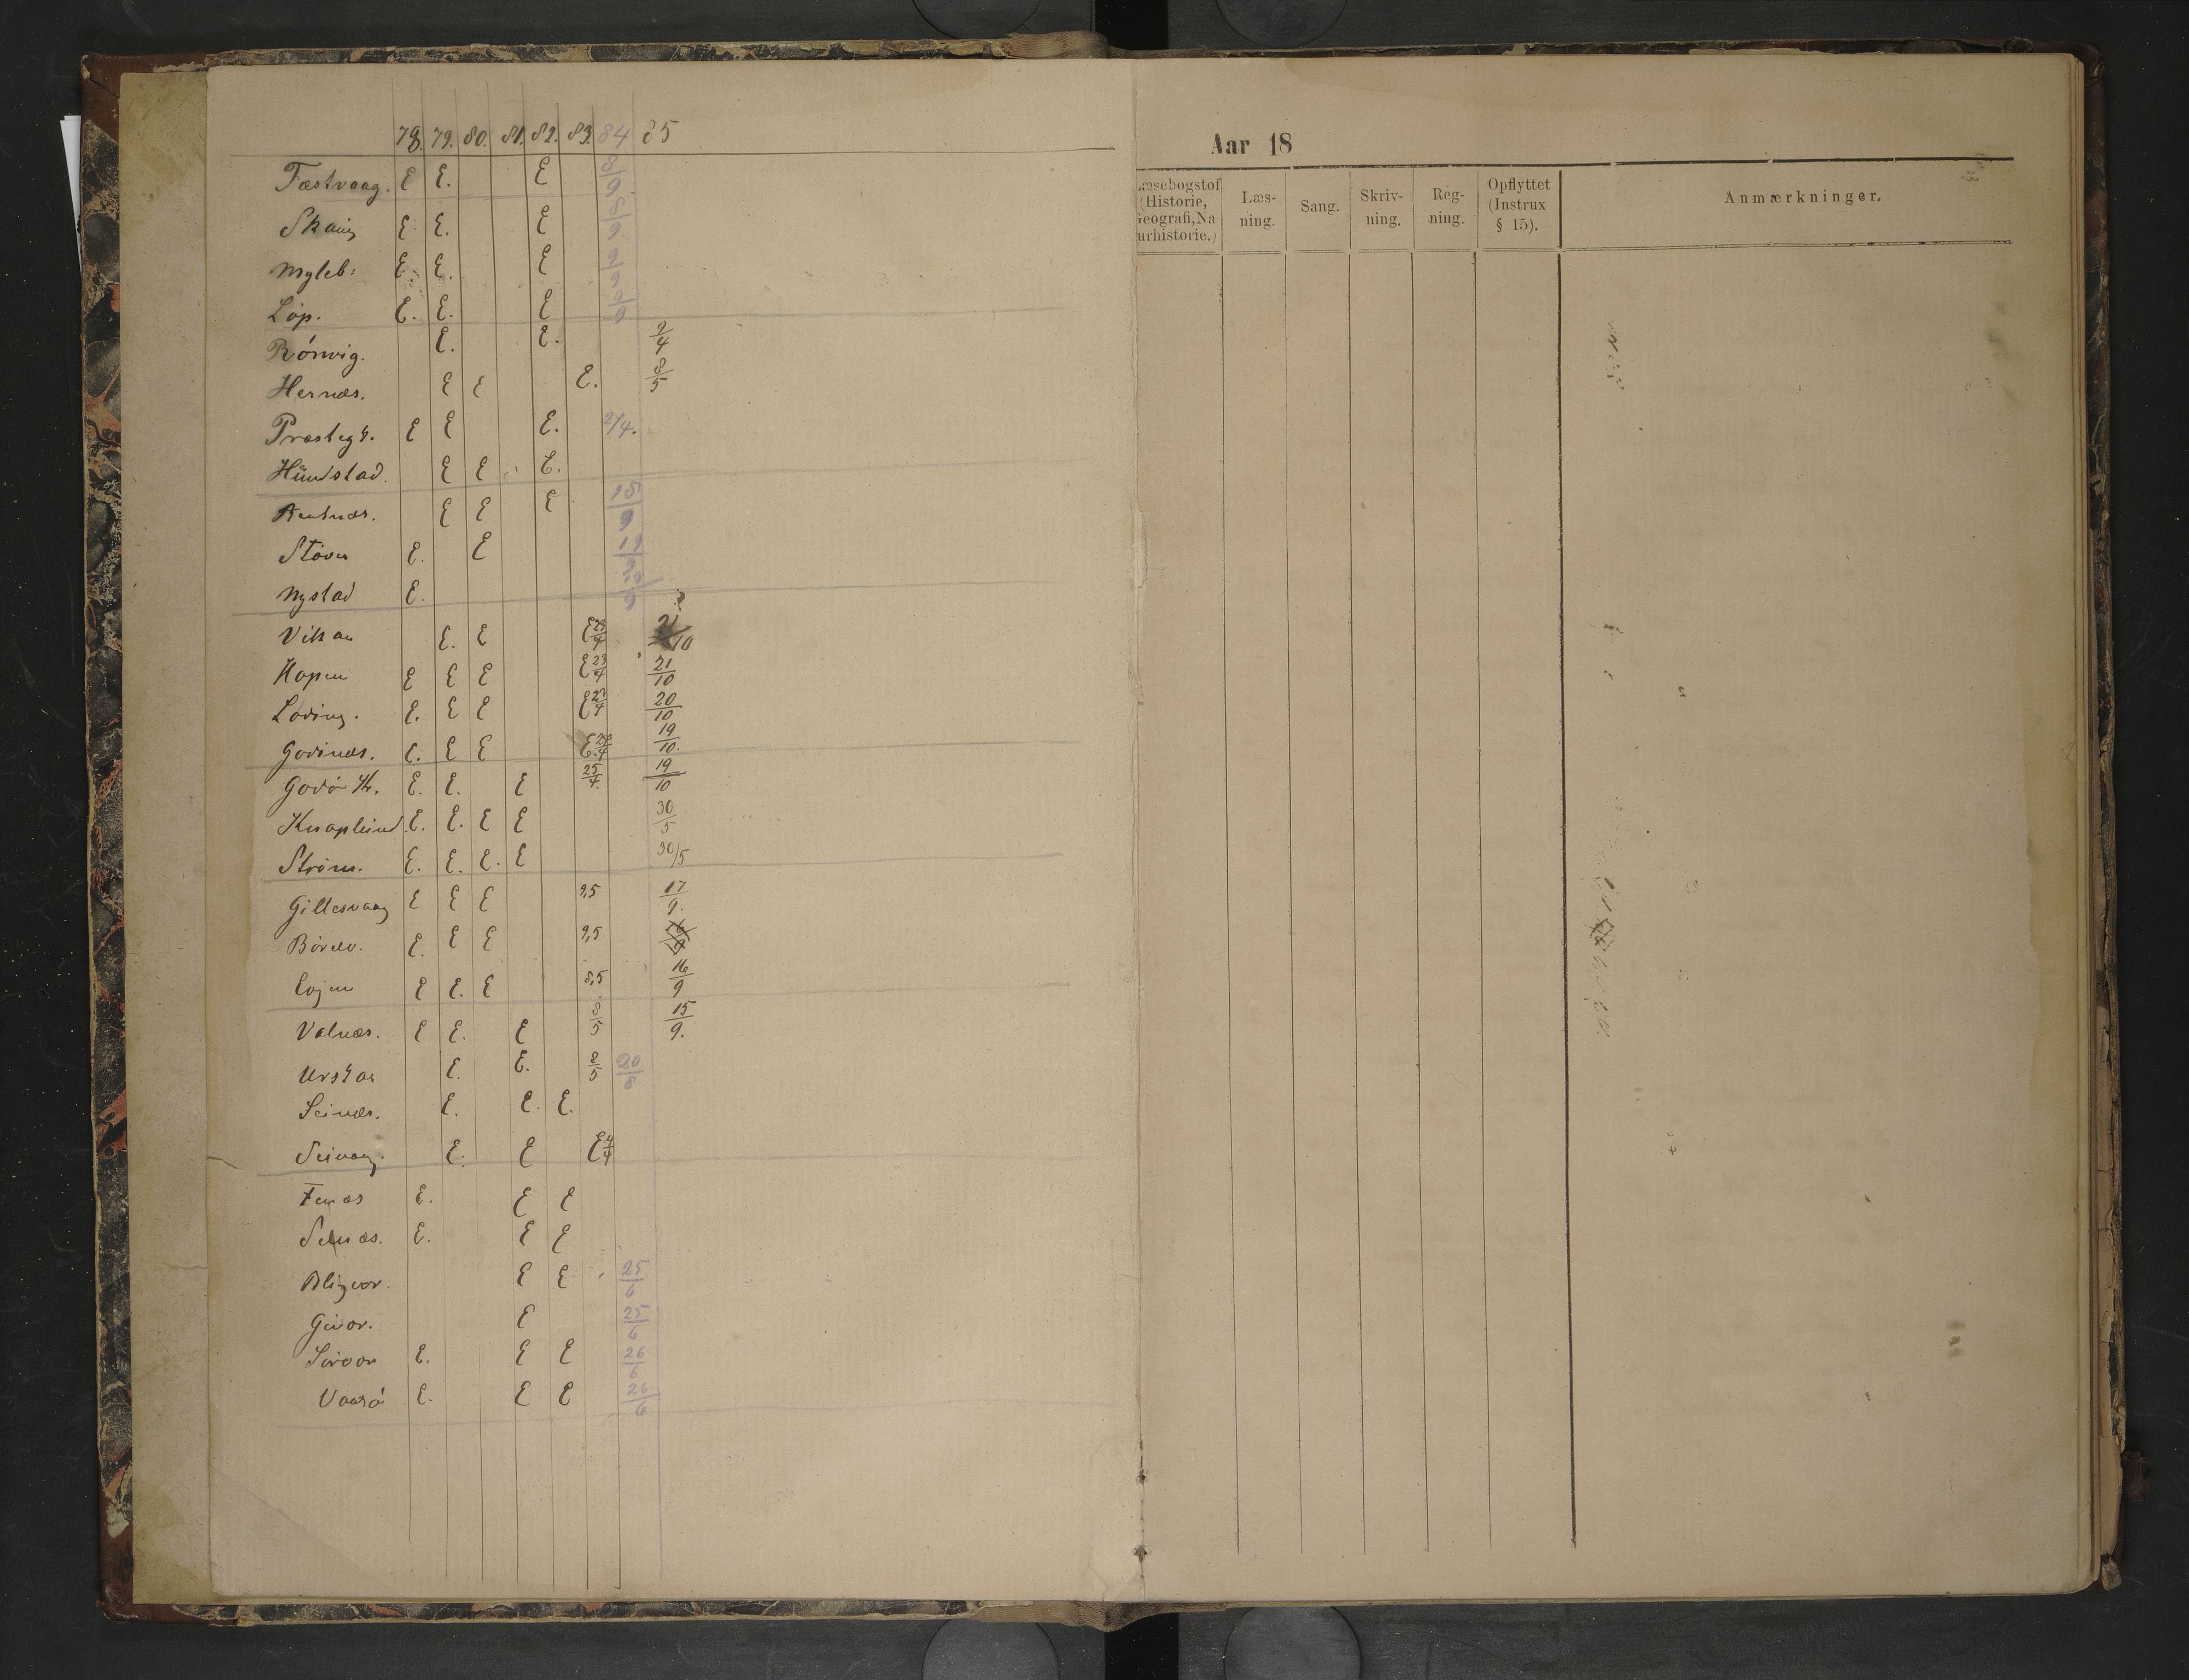 78. 79. 80. 81. 82. 83. 84 85
Tæstvaag. E E. E 8/9
Skaug E E. E 8/9
Mykleb: E. E. E 9/9
Løp. E. E. E 9/9
Rönvig. E. E. 9/4
Hernæs. E E E. 8/5
Præsteg4. E E E. 2/4.
Hündstad. E E E.
Rentnæs. E E E 18/9
Støver E. E 19/9
Nystad E. 19/9
Vikan E. E E 23/4 21/10
Hopen E E E E 23/4 21/10
Løding. E. E E E 24/4 20/10
Godinæs. E. E E E 24/4 19/10.
Godö St. E. E. E 25/4. 19/10
Knaplund. E. E. E E 30/5
Ström. E. E. E. E 30/5
Gillesvaag E E E 9,5 17/9.
Börelv. E. E E 9,5
Evjen E E. E 8,5 16/9
Valnæs. E E. E 8/5 15/9.
Urskar E. E. 8/5 20/8
Seinæs. E. E. E.
Seivaag. E. E E 4/4
Fenæs E. E E
Selnæs. E. E E
Bligvær. E E 25/6
Givær. E 25/6
Sörvær E. E E 26/6
Vaagö E. E E 26/6
Aar 18
Læsebogstof (Historie, Geografi, Naturhistorie.)
Læsning.
Sang.
Skrivning.
Regning.
Opflyttet (Instrux § 15).
Anmærkninger.